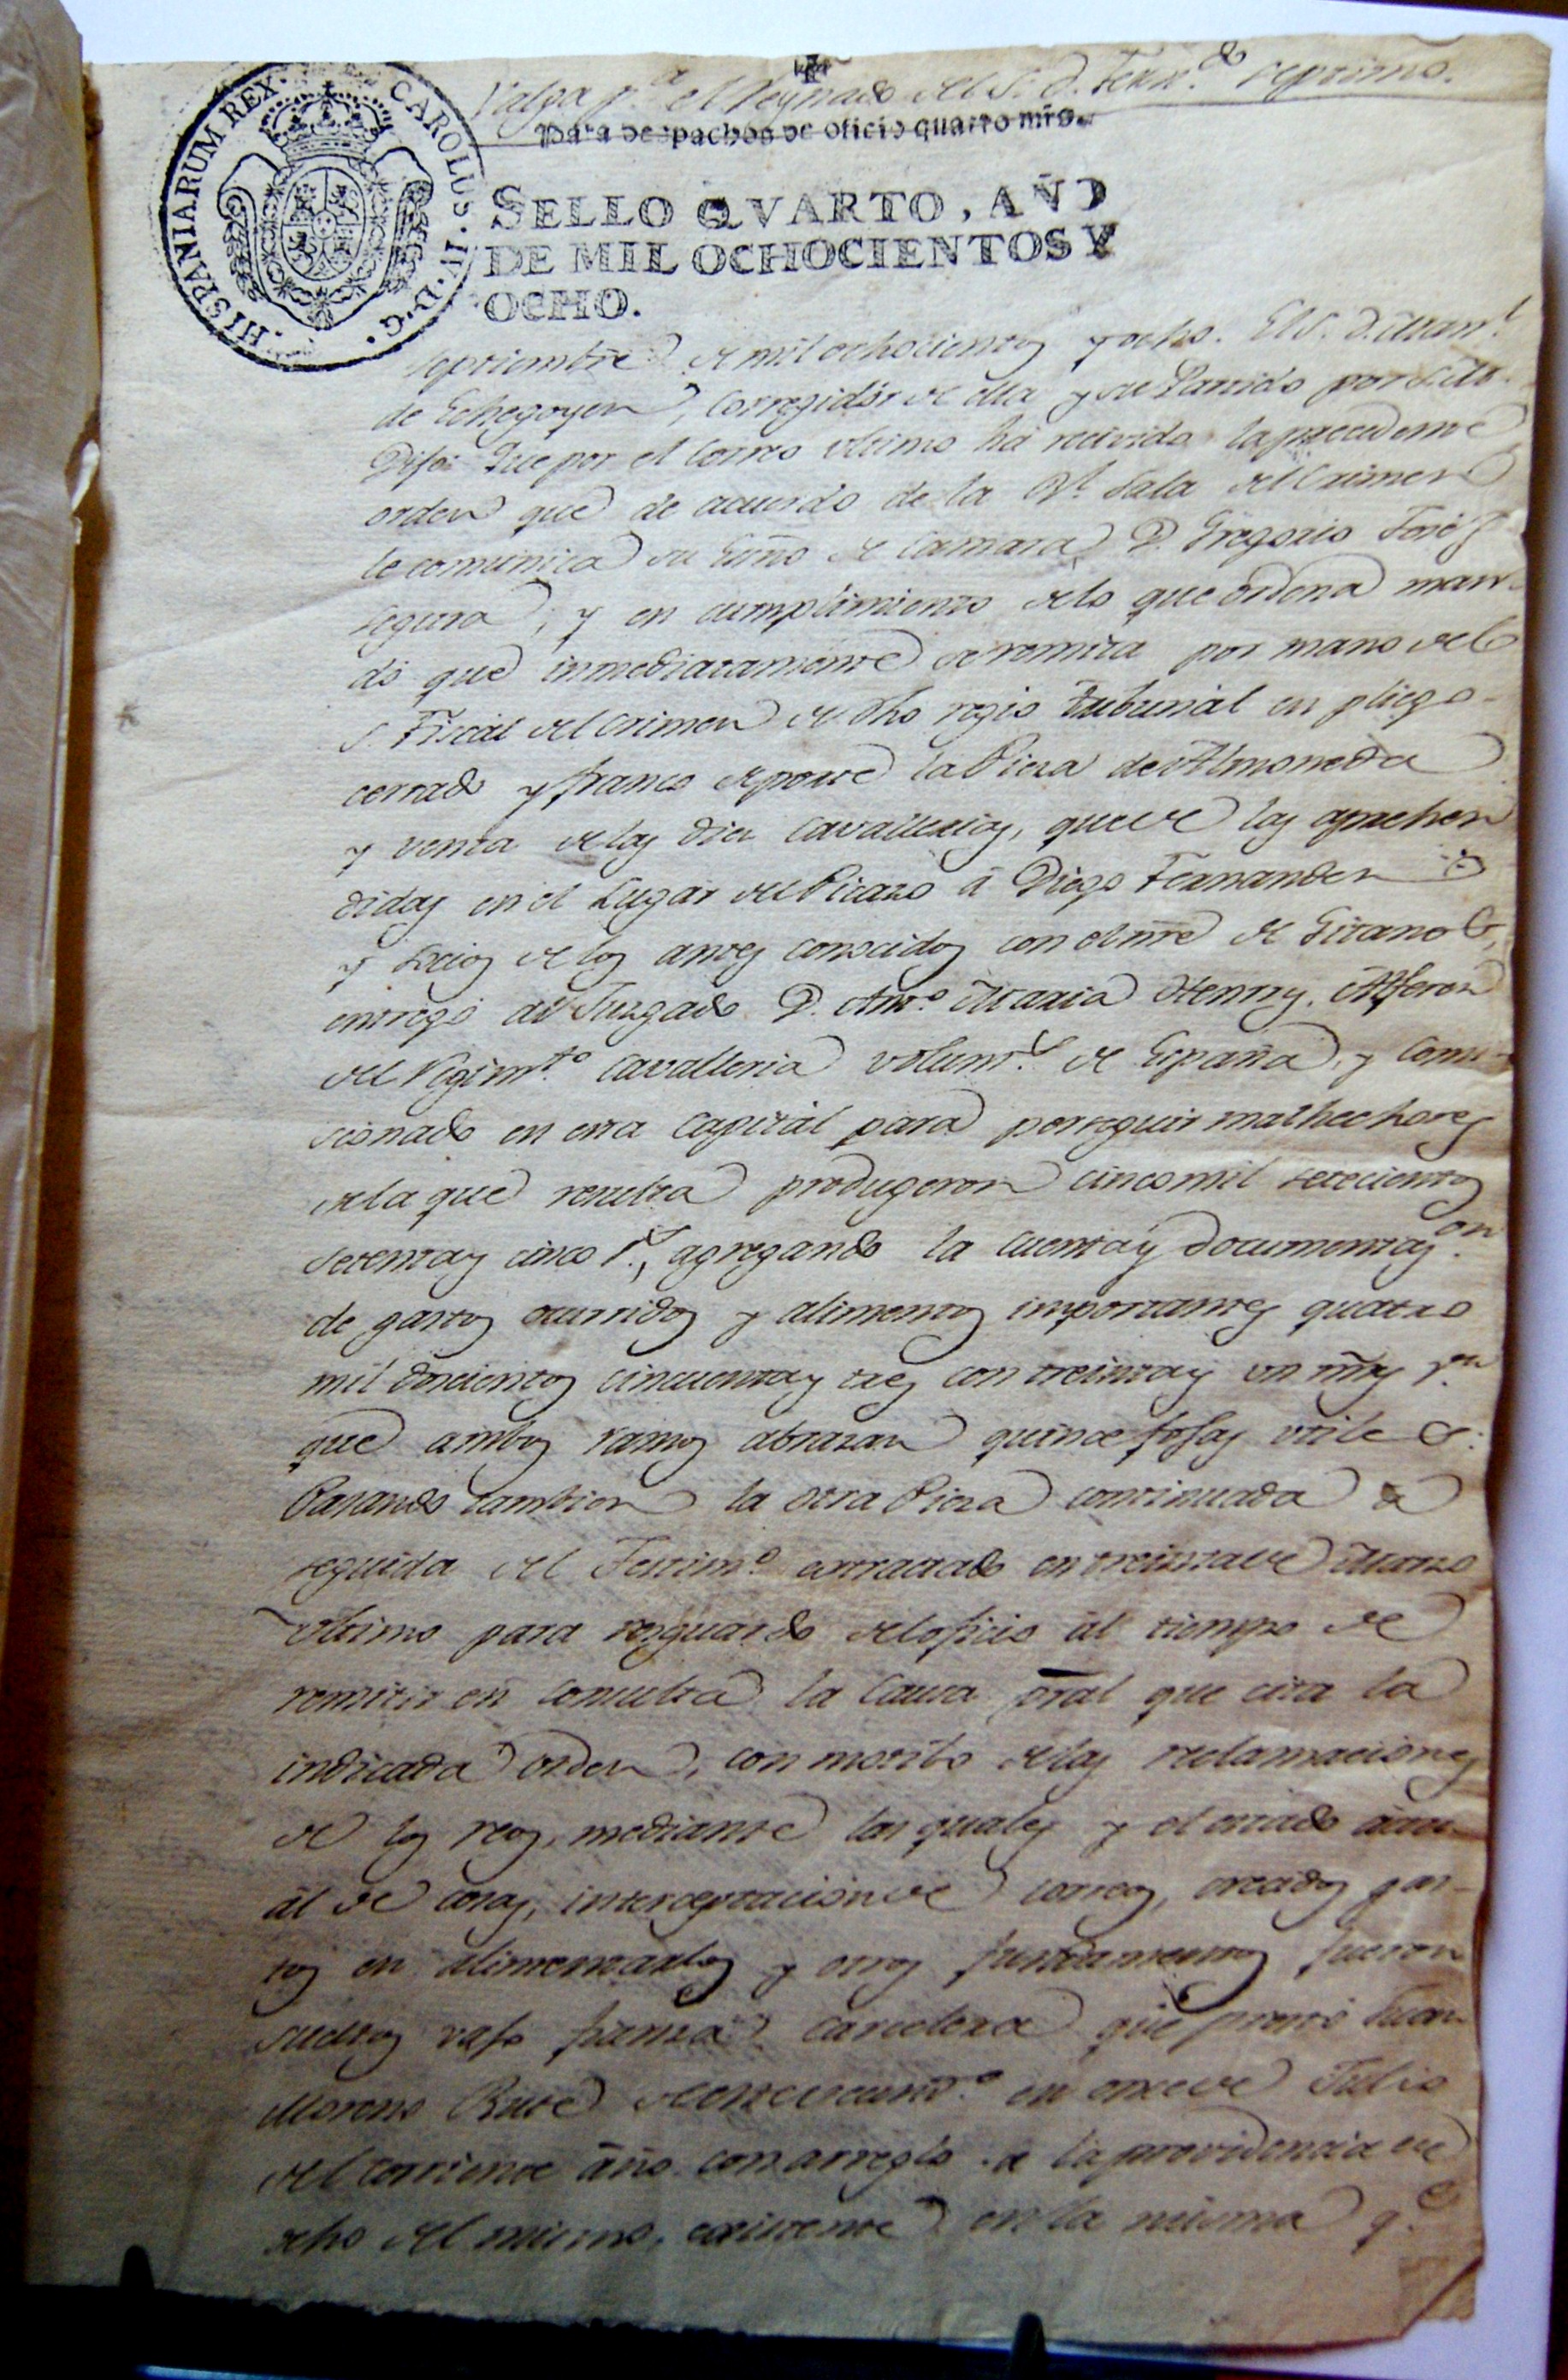 HISPANIARUM REX. CAROLUS. IV. D. G.
Valga p.ª el Reynado del S. D. Fern.do septimo.
Para despachos de oficio quatro mrs.
SELLO QVARTO, AÑO
DE MIL OCHOCIENTOS Y
OCHO.
septiembre de mil ochocientos y ocho. El S. D. Man.l
de Echegoyen, Corregidor de ella y su Partido por S. M.
Dijo: Que por el Correo ultimo há recivido la precedente
orden que de acuerdo de la R.l Sala del Crimen
le comunica su Essno de Camara D. Gregorio José
segura, y en cumplimiento de lo que ordena man-
dó que inmediatamente se remita por mano del
S. Fiscal del Crimen de dho regio tribunal en pliego
cerrado y franco de porte la Pieza de Almoneda
y venta de las diez Cavallerias, que de las aprehen
didas en el Lugar del Picazo á Diego Fernandez
y socios de los antes conocidos con el nre de Gitanos,
entregó al Juzgado D. Ant.º Maria Henry, Alferez
del Regim.to Cavalleria volunt.s de España, y Comi-
sionado en esta Capital para perseguir malhechores
de la que resulta produgeron cinco mil setecientos
setenta y cinco r.s, agregando la Cuenta y documentaz.on
de gastos ocurridos y alimentos importantes quatro
mil doscientos cincuenta y tres con treinta y un mrs v.n
que ambos ramos abrazan quince fojas utiles:
Pasando tambien la otra Pieza continuada á
seguida del Testim.º extractado en treinta de Marzo
ultimo para resguardo del oficio al tiempo de
remitir en Consulta la Causa pral que cita la
indicada orden, con motibo de las reclamaciones
de los reos, mediante las quales y el estado actu-
al de cosas, interceptacion de correos, crecidos gas-
tos en alimentarlos y otros fundamentos fueron
sueltos vajo fianza Carcelera que prestó Juan
Moreno de esta vecind.d en once de Julio
del corriente año con arreglo a la providencia de
ocho del mismo, existente en la misma q.e